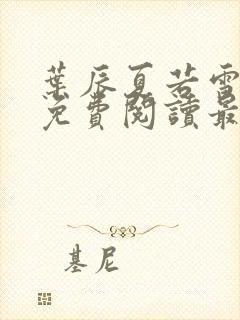 葉辰夏若雪
免費閱讀最
基尼